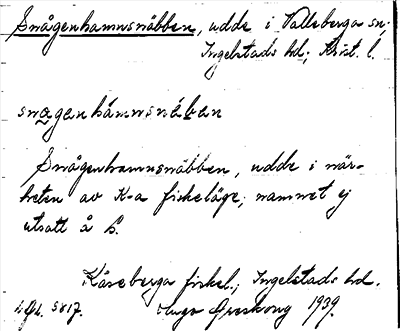 Snågenhamnsnäbben, udde i Valleberga sn;
Ingelstads hd; Krist. l.
snagenhámnsnáben
Snågenhamnsnäbben, udde i när-
heten av K-a fiskeläge; namnet ej
utsatt å k.
Kåseberga fiskel.; Ingelstads hd.
LGL. 5817. 1939.